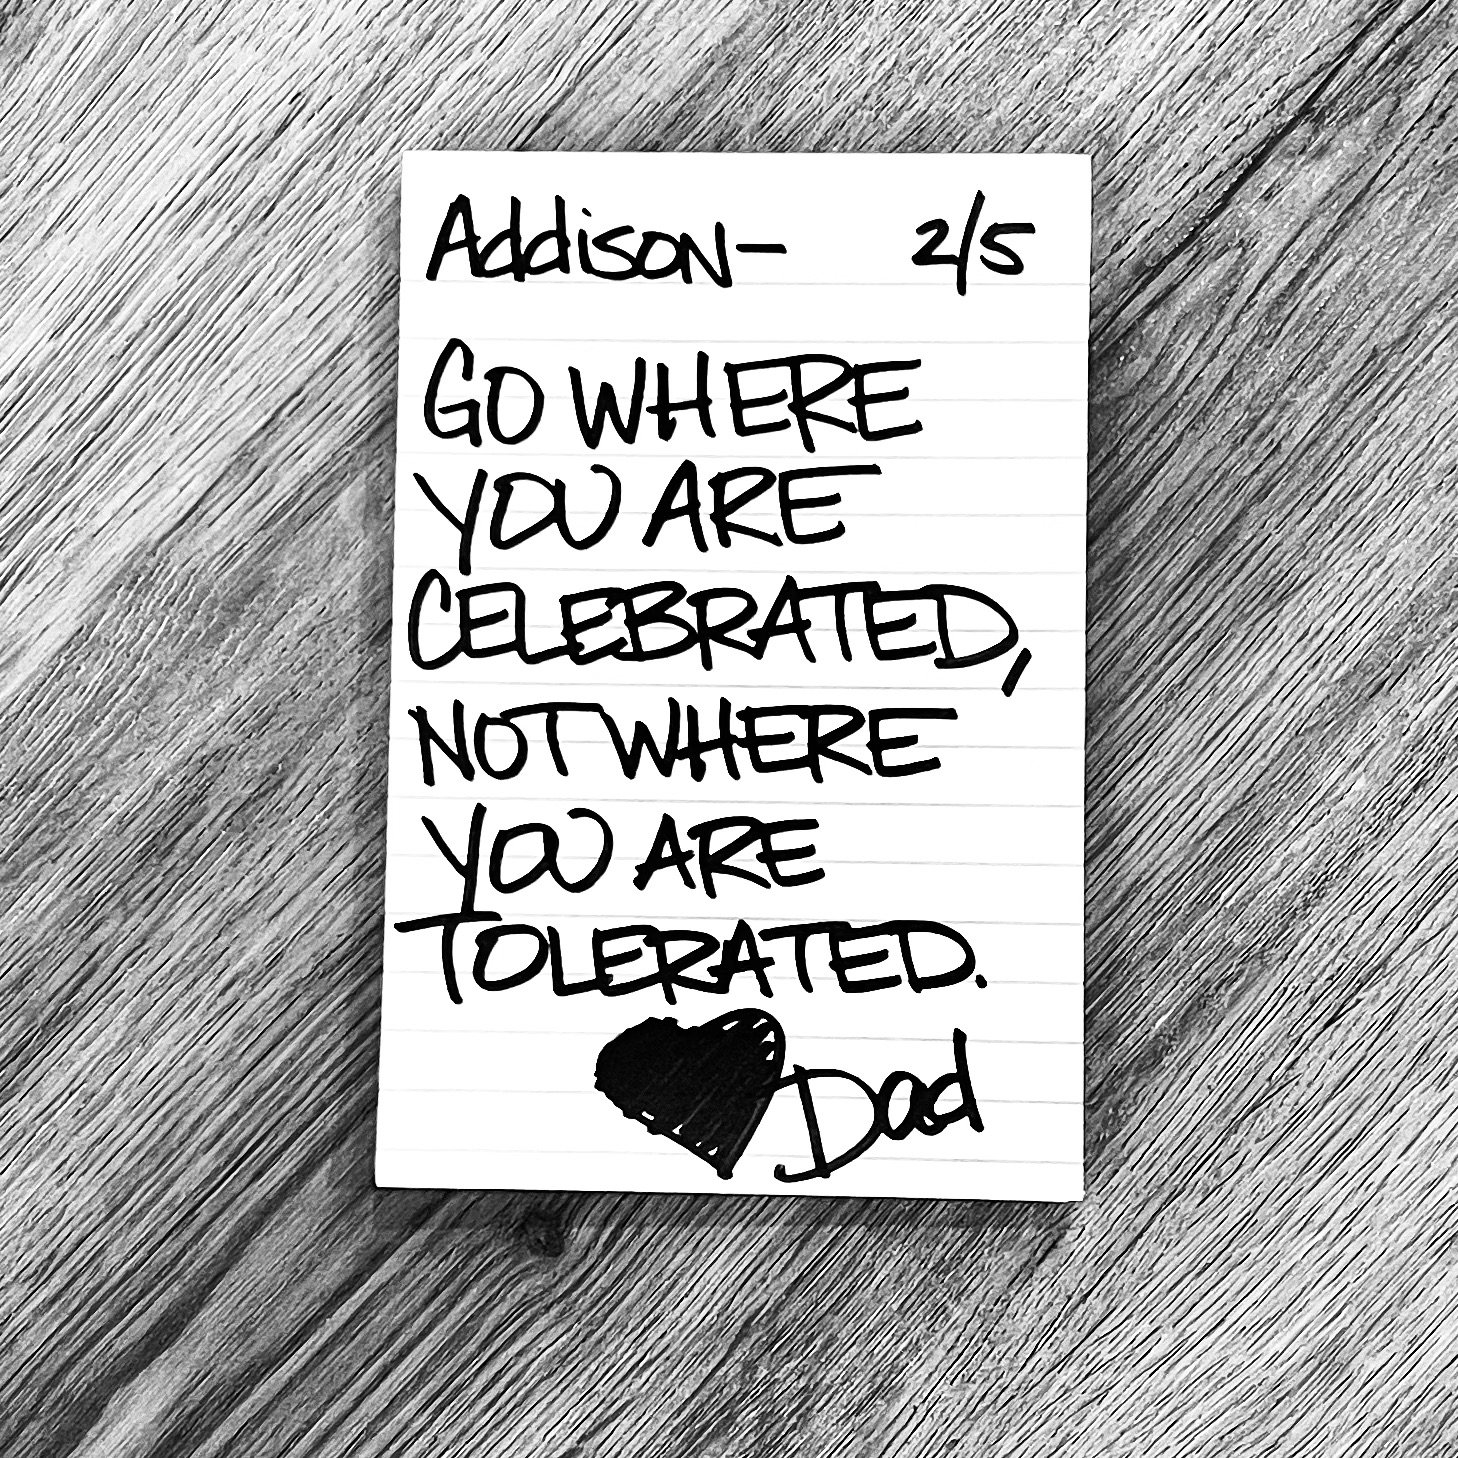 Addison- 2/5
GO WHERE
YOU ARE
CELEBRATED,
NOT WHERE
YOU ARE
TOLERATED.
Dad